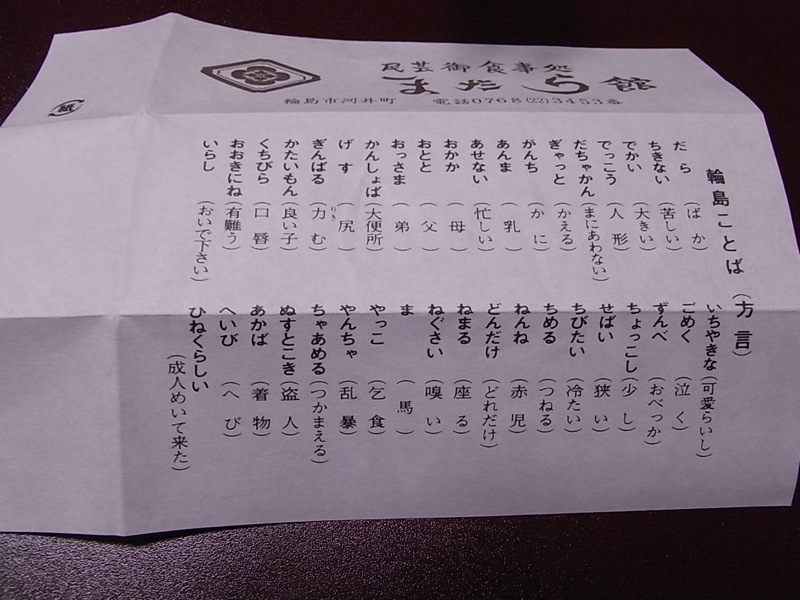 民芸御食事処
まだら館
輪島市河井町　電話0768(22)3453番
輪島ことば(方言)
だら(ばか)
ちきない(苦しい)
でかい(大きい)
でっこう(人形)
だちゃかん(まにあわない)
ぎゃっと(かえる)
がんち(かに)
あんま(乳)
あせない(忙しい)
おかか(母)
おとと(父)
おっさま(弟)
かんしょば(大便所)
げす(尻)
ぎんばる(力む)
りき
かたいもん(良い子)
くちびら(口唇)
おおきにね(有難う)
いらし(おいで下さい)
いちゃきな(可愛らいし)
ごめく(泣く)
ずんべ(おべっか)
ちょっこし(少し)
せばい(狭い)
ちびたい(冷たい)
ちめる(つねる)
ねんね(赤児)
どんだけ(どれだけ)
ねまる(座る)
ねぐさい(嗅い)
ま(馬)
やっこ(乞食)
やんちゃ(乱暴)
ちゃあめる(つかまえる)
ぬすとこき(盗人)
あかば(着物)
へいび(へび)
ひねくらしい
(成人めいて来た)